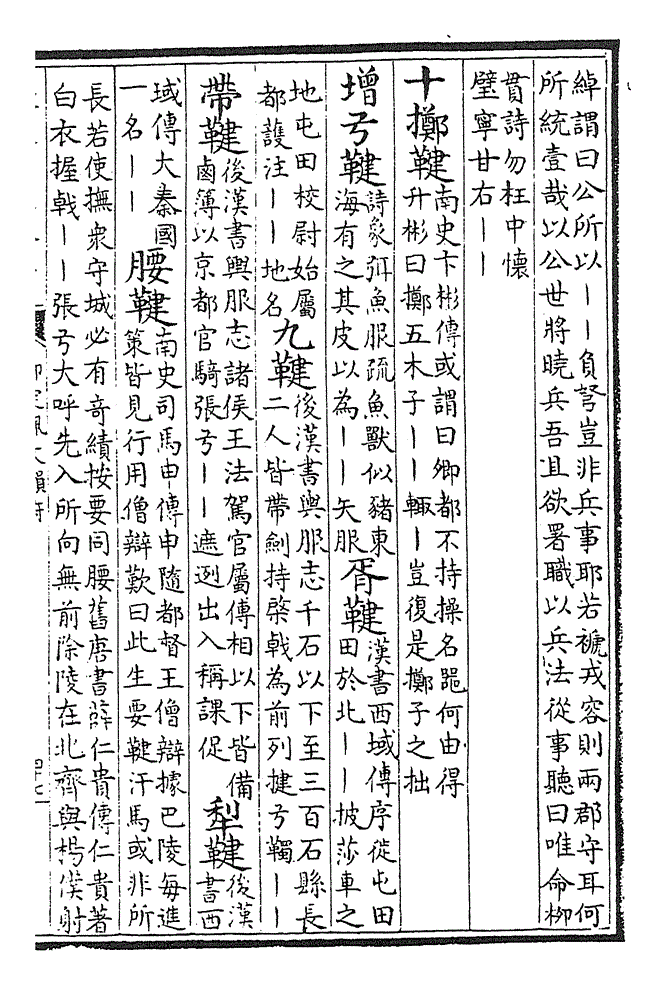 綽謂曰公所以——負弩豈非兵事耶若褫戎容則兩郡守耳何
所統壹哉以公世將曉兵吾且欲署職以兵法從事聽曰唯命柳
貫詩勿枉中懷
璧寧甘右——
十擲鞬
南史卞彬傳或謂曰卿都不持操名噐何由得
升彬曰擲五木子——輙—豈復是擲子之拙
增弓鞬
詩象弭魚服疏魚獸似豬東
海有之其皮以為——矢服
胥鞬
漢書西域傳序從屯田
田於北——披莎車之
地屯田校尉始屬
都護注——地名
九鞬
後漢書輿服志千石以下至三百石縣長
二人皆帶劍持棨戟為前列揵弓韣——
帶鞬
後漢書輿服志諸侯王法駕官屬傳相以下皆備
鹵簿以京都官騎張弓——遮迾出入稱課促
犁鞬
後漢
書西
域傳大秦國
一名——
腰鞬
南史司馬申傳申隨都督王僧辯據巴陵每進
策皆見行用僧辯歎曰此生要鞬汗馬或非所
長若使撫衆守城必有奇績按要同腰舊唐書薛仁貴傳仁貴著
白衣握戟——張弓大呼先入所向無前除陵在北齊與楊僕射